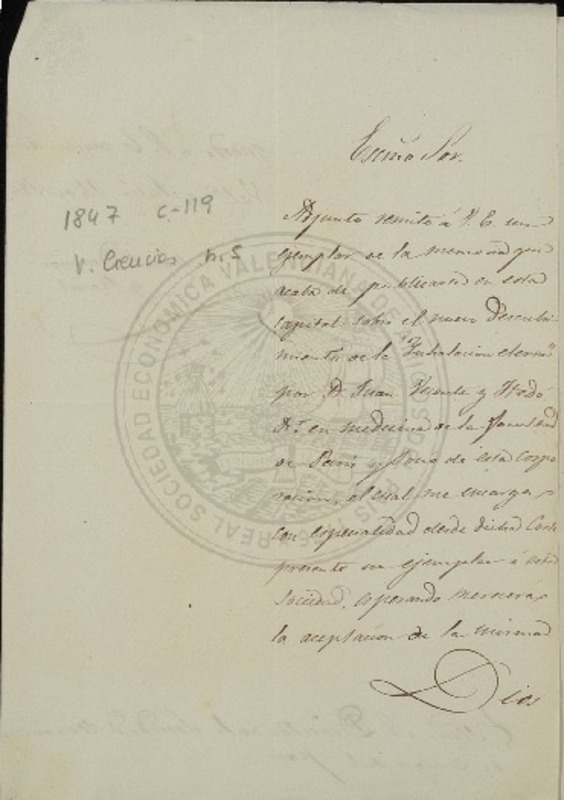 Exmo Sor.
1847 C-119
V. Ciencias n. 5
Adjunto remito á V. E. un
ejemplar de la memoria que
acaba de publicarse en esta
capital sobre el nuevo descubri
miento de la "Inhalacion eterea"
por D. Juan Vicente y
Dr. en medicina de la Facultad
de Paris y Socio de esta Corpo
racion, el cual me encarga
con especialidad desde dicha Corte
presente un ejemplar á esta
Sociedad, esperando merecerá
la aceptacion de la misma
Dios
REAL SOCIEDAD ECONOMICA VALENCIANA DE AMIGOS DEL PAIS